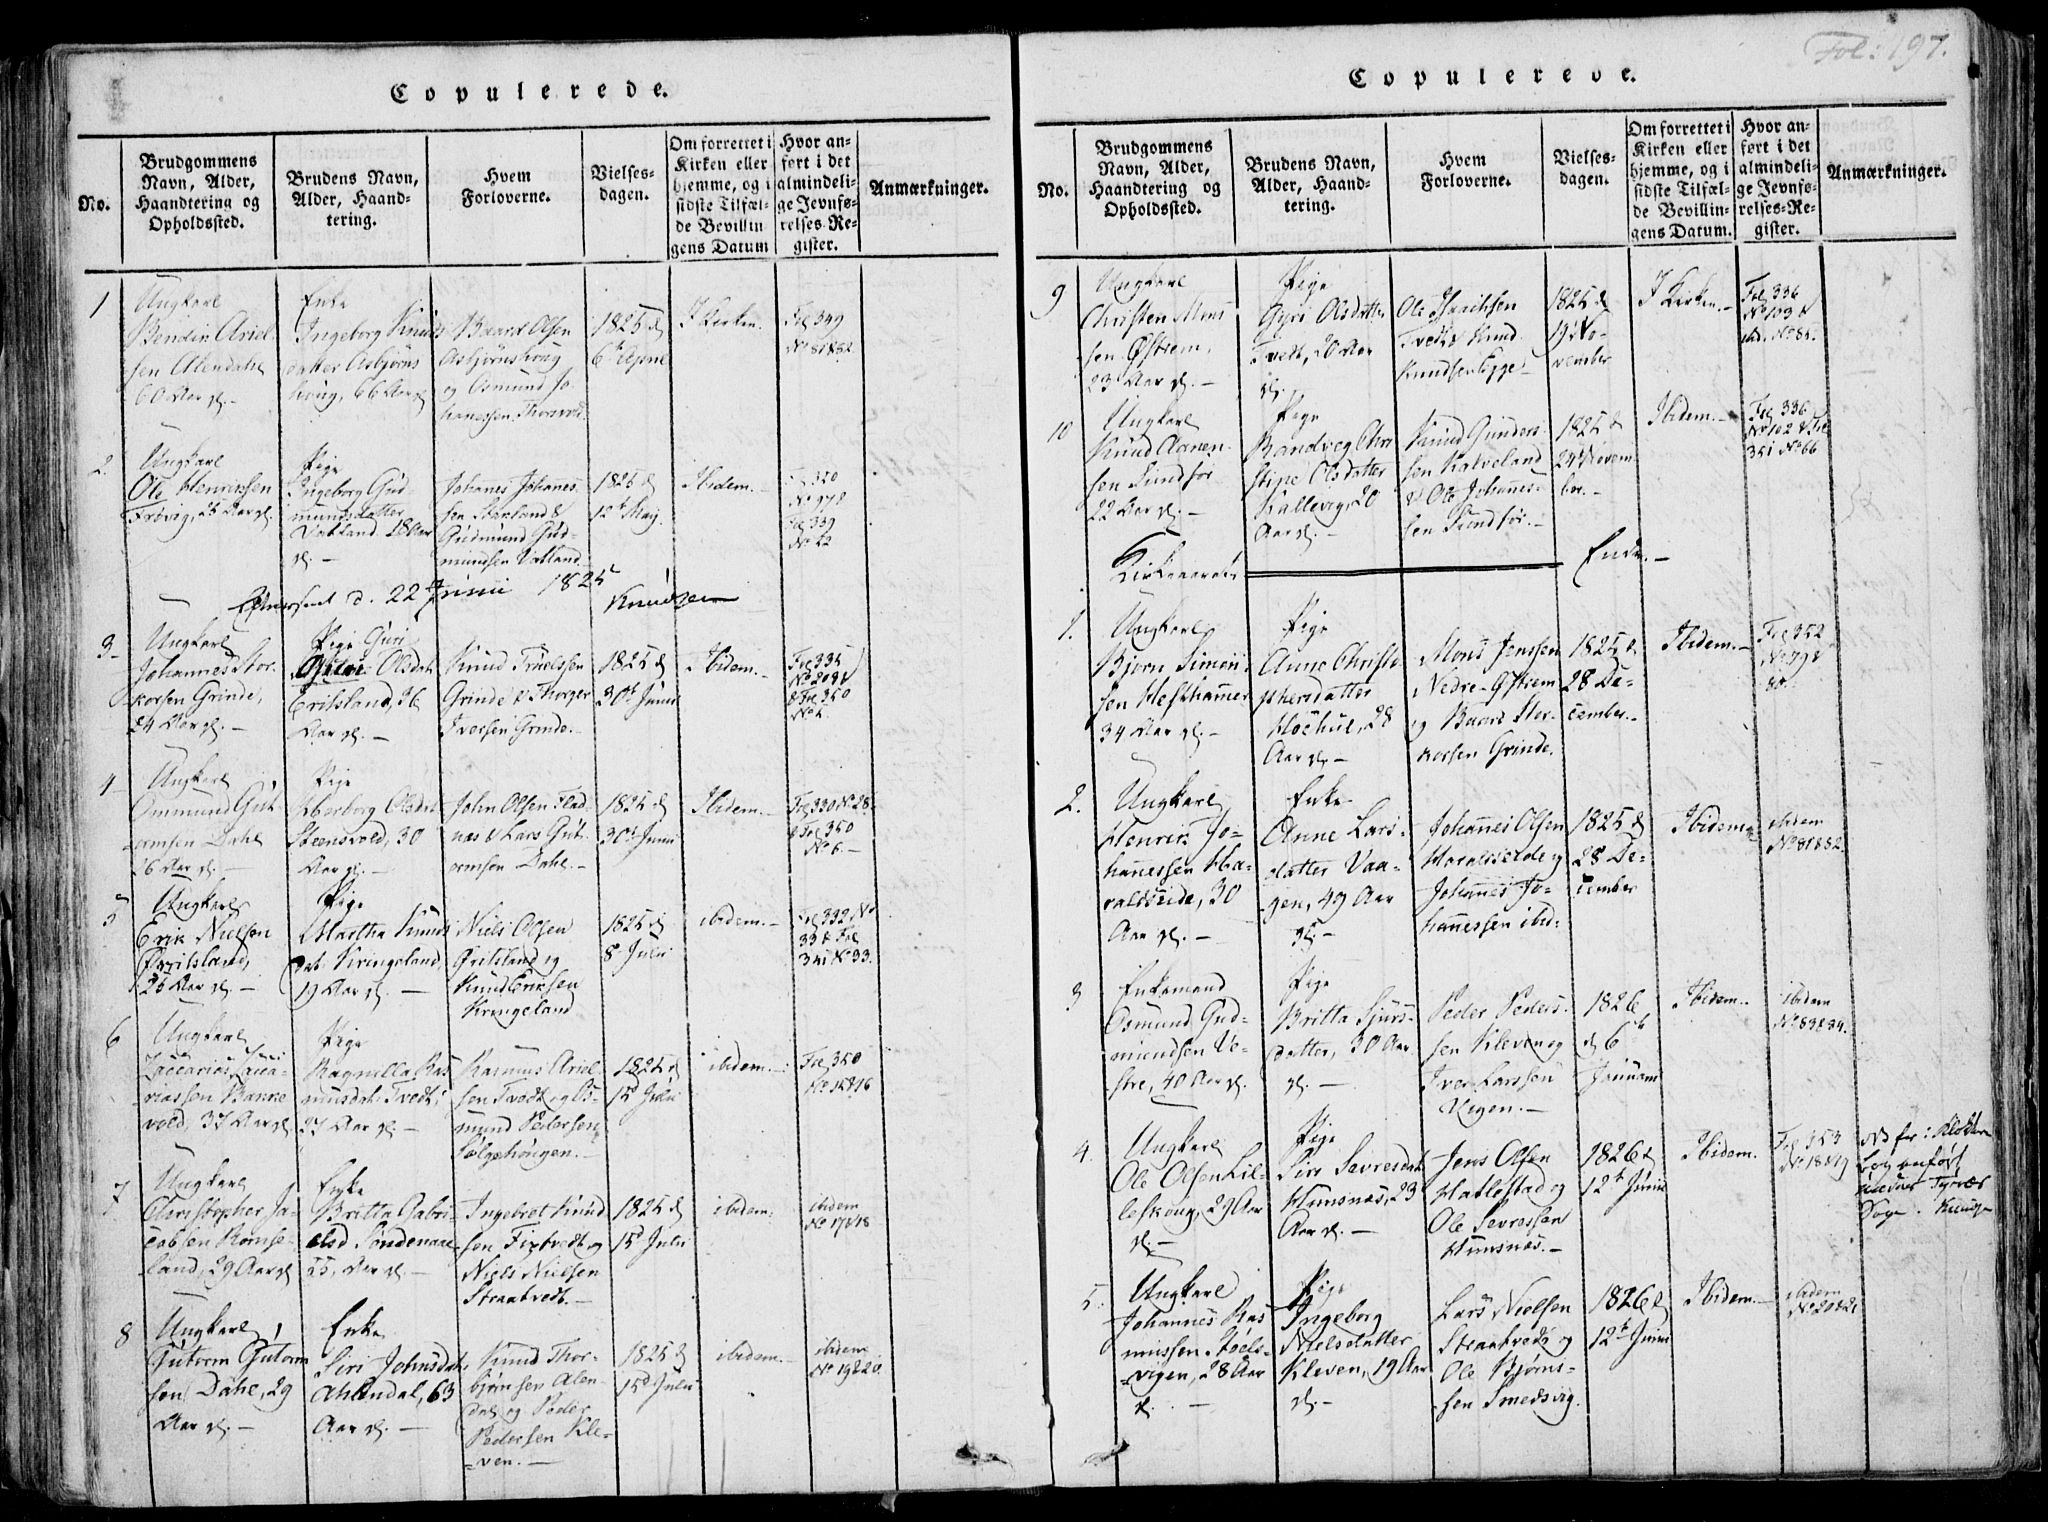 Copulerede.
No.
Brudgommens
Navn, Alder,
Haandtering og
Opholdssted.
Brudens Navn,
Alder, Haand-
tering.
Hvem
Forloverne.
Vielses-
dagen.
Om forrettet i
Kirken eller
hjemme, og i
sidste Tilfæl-
de Bevillin
gens Datum
Hvor an-
ført i det
almindeli-
ge Jevnfø-
relses-Re-
gister.
Anmærkninger.
1
Ungkarl
60 Aar gl. -
Enke
Ingeborg Knuds
datter Asbjørns
houg, 66 Aar gl
Baard Olsen
Asbjørnshoug
og Osmund Jo
hanessen
1825 d
I Kirken.
Fol 349
No 81&82
2.
Ungkarl
Ole Henricsen
Pige
Ingeborg Gud-
mundsdatter
18 Aar
gl. -
Johanes Johanes-
sen
Gudmund Gud-
mundsen
1825 d
12t Maj
Ibidem. -
Fol 339
d. 22 Junii 1825
Knudsen
3
Ungkarl
Johannes Stor-
korsen Grinde,
24 Aar gl. -
Pige Guri
Olsdat
26
Aar gl. -
Knud Truelssen
Grinde & Thorger
Iversen Grinde. -
1825 d
30t Junii
Ibidem. -
Fol 335
& Fol 350
4
Ungkarl
Ommund Gut-
ormsen Dahl
26 Aar gl. -
Pige
Olsdat
Steensvold, 30
Aar gl. -
John Olsen Flad-
næs & Lars Gut-
ormsen Dahl. -
1825 d
30t Junii
Ibidem. -
Fol 330 No 28.
& Fol 350
No 6. -
5
Ungkarl
Erik Nielsen
25 Aar gl. -
Pige
Martha Knuds
dat. Kringeland,
19 Aar gl. -
Niels Olsen
og
Knud Eriksen
Kringeland
1825 d
8 Julii
ibidem. -
Fol 332 No
33 & Fol
341 No 33.
6
Ungkarl
Zaccarias Zacca-
riassen Banne
vold, 37 Aar gl
Pige
Ragnilla Ras
musdat. Tvedt,
27 Aar gl. -
Rasmus Ariel
sen Tvedt og Os-
mund Pedersen
1825 d
15d Julii
ibidem. -
Fol 350
No 15&16
7
Ungkarl
Christopher Ja-
cobsen Rømse-
land, 29 Aar gl
Enke
Britta Gabri-
elsd Søndenaae
55, Aar gl. -
Ingebret Knud
sen Fixtvedt og
Niels Nielsen
Straatvedt. -
1825 d
15d Julii
ibidem.
ibidem
No 17&18
8
Ungkarl
Gutorm Gutorm
sen Dahl, 29
Aar gl. -
Enke
Siri Johnsdat.
Ahlendal, 63
Aar gl. -
Knud Thor-
bjørnsen Alen-
dal og Peder
Pedersen Kle-
ven. -
1825 d
15d Julii
ibidem. -
ibidem
No 19&20.
Fol: 197.
Copulerede.
No.
Brudgommens
Navn, Alder,
Haandtering og
Opholdssted.
Brudens Navn,
Alder, Haand-
tering.
Hvem
Forloverne.
Vielses-
dagen.
Om forrettet i
Kirken eller
hjemme, og i
sidste Tilfæl-
de Bevillin-
gens Datum.
Hvor an-
ført i det
almindeli-
ge Jevnfø-
relses-Re-
gister.
Anmærkninger.
9
Ungkarl
Christen Mons
sen Østrem,
23 Aar gl. -
Pige
Guri Olsdatter
Tvedt, 20 Aar
gl.
Ole
Tvedt & Knud
Knudsen
1825 d
19 No-
vember
I Kirken. -
Fol 336
No 103 &
10
Ungkarl
Knud Aanen-
sen Sundfør
22 Aar gl. -
Pige
Randveg Chri
stine Olsdatter
Kallevig, 20
Aar gl. -
Knud Gunders
sen Kalveland
& Ole Johannes-
sen Sundfør. -
1825 d
24 Novem-
ber. -
Ibidem. -
Fol 336
No 102 & Fol
341 No 66
Kirkeaarets
Ende. -
1.
Ungkarl
Bjørn Simon-
sen Hesthamer
34 Aar gl. -
Pige
Anne Christo
phersdatter
28
Aar gl. -
Mons Jenssen
Nedre-Østrem
og Baard Stor-
korsen Grinde.
1825 d.
28 De-
cember. -
Ibidem. -
Fol 352
No 79 &
80. -
2.
Ungkarl
Henrik Jo-
hannessen Ha-
raldseide, 30
Aar gl. -
Enke
Anne Lars-
datter Vaa-
gen, 49 Aar
gl. -
Johannes Olsen
Haraldseide og
Johannes Jo-
hannessen ibid:
1825 d
28 De-
cember
Ibidem
ibidem
No 81&82.
3
Enkemand
Osmund Gud-
mundsen Ve-
stre, 40 Aar gl.
Pige
Britta Sjurs-
datter, 30 Aar
gl. -
Peder Peders-
sen Kleven og
Iver Larssen
1826
d 6te
Januari
Ibidem.
ibidem
No 83&84.
4.
Ungkarl
Ole Olsen Lil-
leskoug, 29 Aar
gl. -
Pige
Siri Sevresdat
Hunsnæs, 23
Aar gl. -
Jens Olsen
Hatlestad og
Ole Sevressen
Hunsnæs. -
1826 d
12te Junii
Ibidem.
Fol 353
No 18&19
5.
Ungkarl
Johannes Ras
mussen Stoels-
vigen, 28 Aar
gl. -
Pige
Ingeborg
Nielsdatter
Kleven, 19 Aar
gl. -
Lars Nielsen
Straatvedt og
Ole Bjørns-
sen Smedsvig.
1826 d
12te Junii
Ibidem. -
ibidem
No 20&21